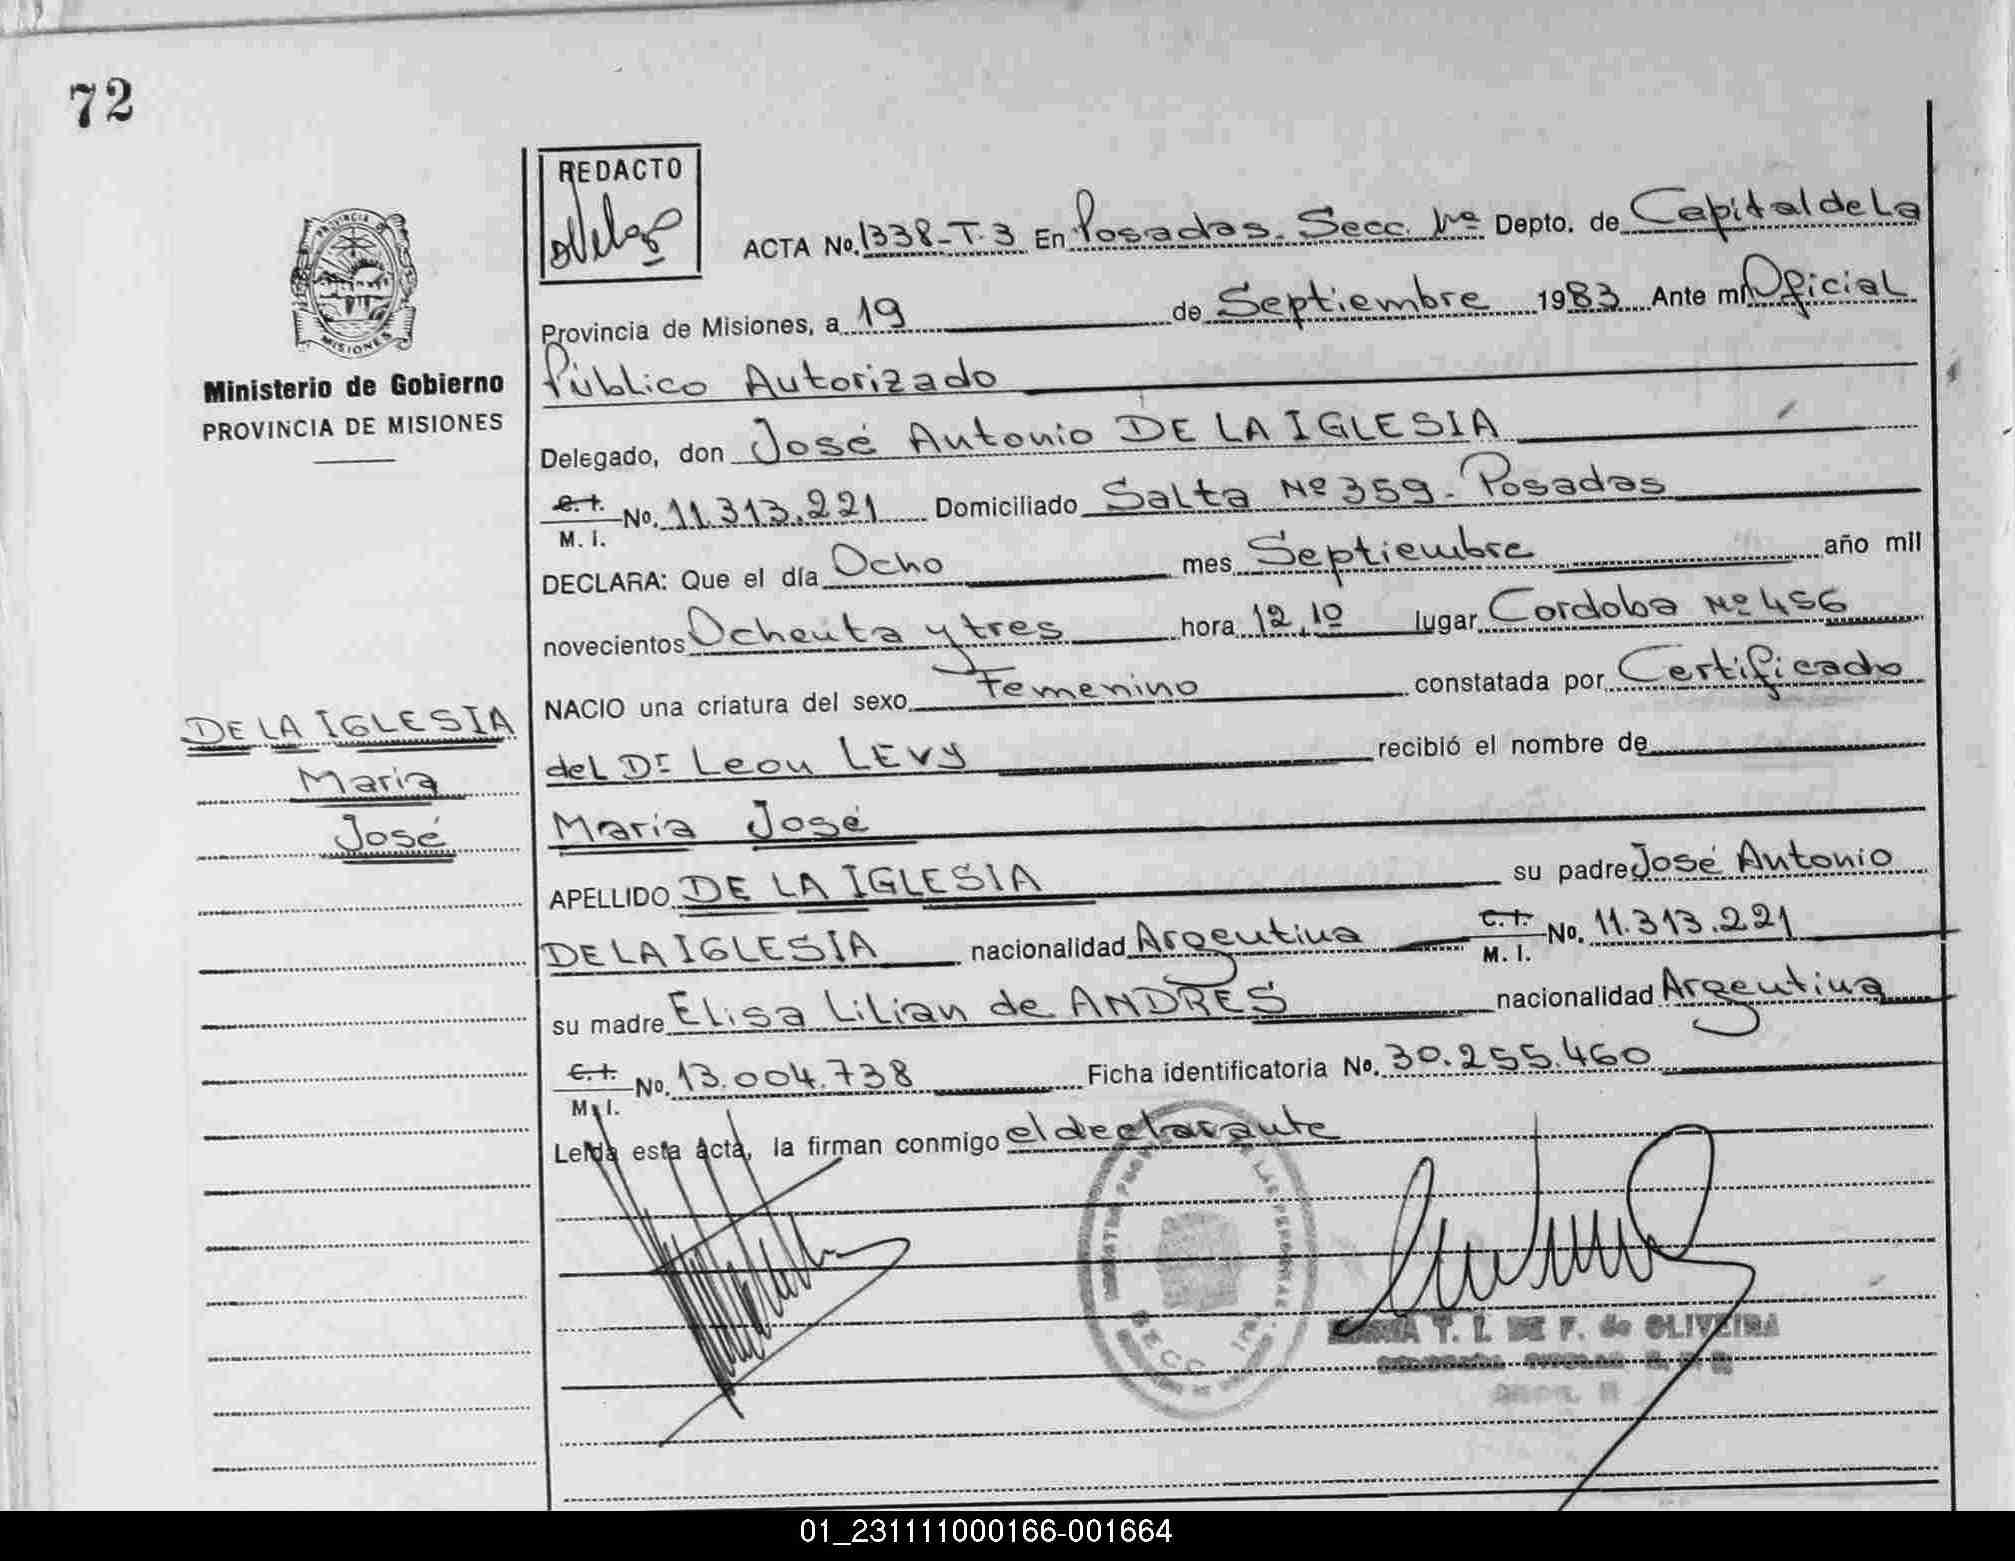 72
REDACTO
PROVINCIA DE
MISIONES
Ministerio de Gobierno
PROVINCIA DE MISIONES
ACTA No. 1338-T.3 En Posadas. Secc. 1ra Depto. de Capital de La
Provincia de Misiones, a 19 de Septiembre 1983 Ante mí Oficial
Público Autorizado
Delegado, don José Antonio DE LA IGLESIA
C.I.
M. I. No. 11.313.221 Domiciliado Salta Nº 359. Posadas
DECLARA: Que el día Ocho mes Septiembre año mil
novecientos Ochenta y tres hora 12,10 lugar Cordoba Nº 456
NACIO una criatura del sexo Femenino constatada por Certificado
del Dr Leon LEVY recibió el nombre de
María José
APELLIDO DE LA IGLESIA su padre José Antonio
DE LA IGLESIA nacionalidad Argentina C.I.
M. I. No. 11.313.221
su madre Elisa Lilian de ANDRES nacionalidad Argentina
C.I.
M. I. No. 13.004.738 Ficha identificatoria No. 30.255.460
Leída esta acta, la firman conmigo el declarante
DE LA IGLESIA
María
José
LAS PERSONAS
SECC. 1ra
T. I. DE F. de OLIVEIRA
01_231111000166-001664